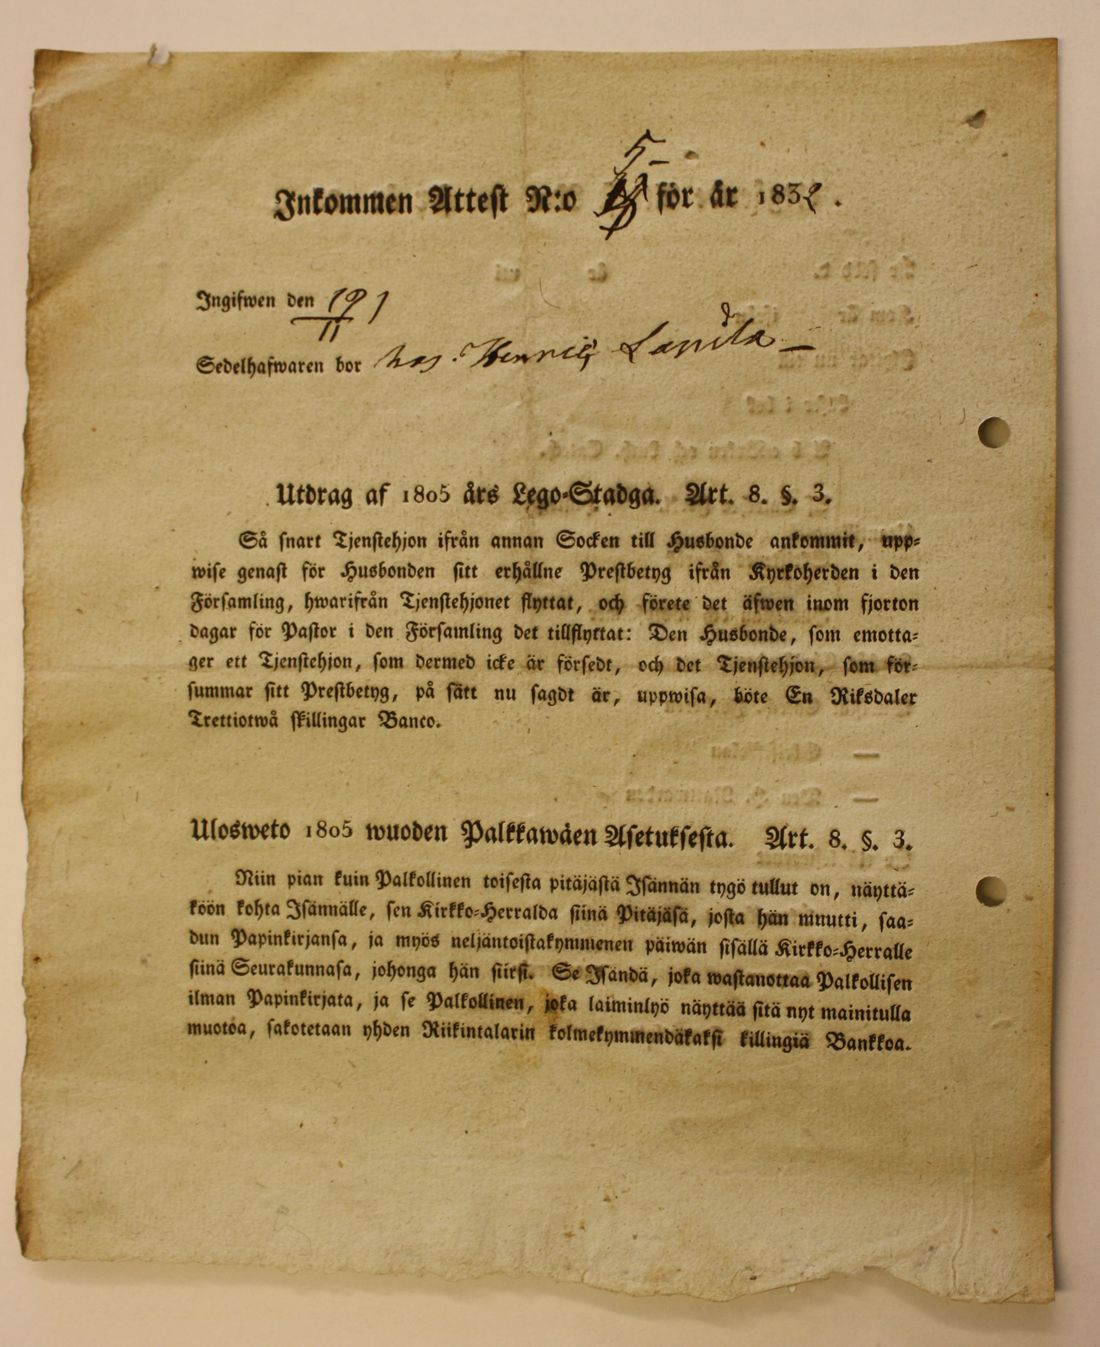 Inkommen Attest N:o 5 för år 1832.
Ingifwen den 19/11
Sedelhafwaren bor hos Henric
Utdrag af 1805 års Lego-Stadga. Art. 8. §. 3.
Så snart Tjenstehjon ifrån annan Socken till Husbonde ankommit, upp-
wise genast för Husbonden sitt erhållne Prestbetyg ifrån Kyrkoherden i den
Församling, hwarifrån Tjenstehjonet flyttat, och förete det äfwen inom fjorton
dagar för Pastor i den Församling det tillflyttat: Den Husbonde, som emotta-
ger ett Tjenstehjon, som dermed icke är försedt, och det Tjenstehjon, som för-
summar sitt Prestbetyg, på sätt nu sagdt är, uppwisa, böte En Riksdaler
Trettiotwå skillingar Banco.
Ulosweto 1805 wuoden Palkkawäen Asetuksesta. Art. 8. §. 3.
Niin pian kuin Palkollinen toisesta pitäjästä Isännän tygö tullut on, näyttä-
köön kohta Isännälle, sen Kirkko-Herralda siinä Pitäjäsä, josta hän muutti, saa-
dun Papinkirjansa, ja myös neljäntoistakymmenen päiwän sisällä Kirkko-Herralle
siinä Seurakunnasa, johonga hän siirsi. Se Isändä, joka wastanottaa Palkollisen
ilman Papinkirjata, ja se Palkollinen, joka laiminlyö näyttää sitä nyt mainitulla
muotoa, sakotetaan yhden Riikintalarin kolmekymmendäkaksi killingiä Bankkoa.